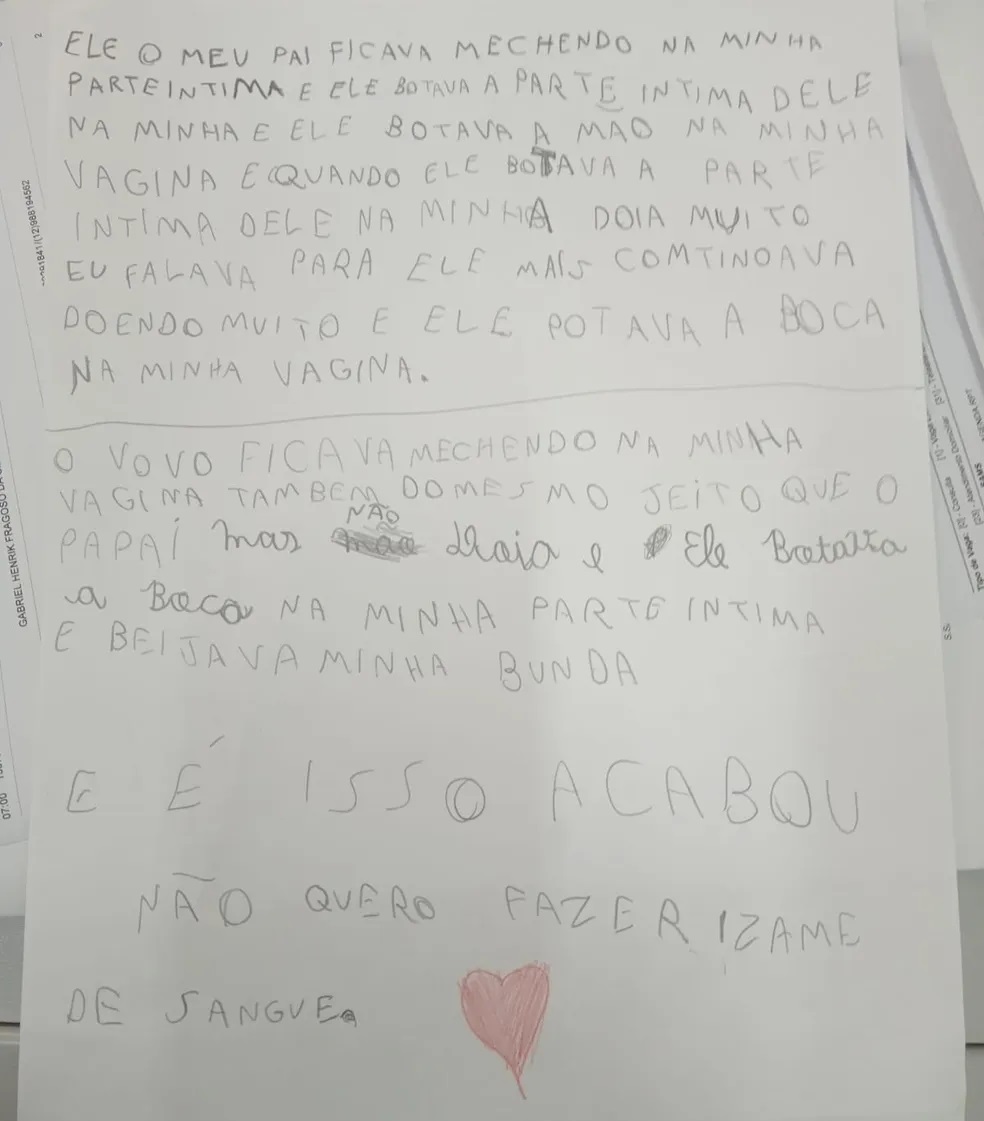 ELE O MEU PAI FICAVA MECHENDO NA MINHA
PARTEINTIMA E ELE BOTAVA A PARTE INTIMA DELE
NA MINHA E ELE BOTAVA A MÃO NA MINHA
VAGINA E QUANDO ELE BOTAVA A PARTE
INTIMA DELE NA MINHA DOIA MUITO
EU FALAVA PARA ELE MAIS COMTINOAVA
DOENDO MUITO E ELE POTAVA A BOCA
NA MINHA VAGINA.
O VOVO FICAVA MECHENDO NA MINHA
VAGINA TAMBEM DO MESMO JEITO QUE O
NÃO
PAPAÍ mas e Ele
a Boca NA MINHA PARTE INTIMA
E BEIJAVA MINHA BUNDA
E É ISSO ACABOU
NÃO QUERO FAZER IZAME
DE SANGUE.